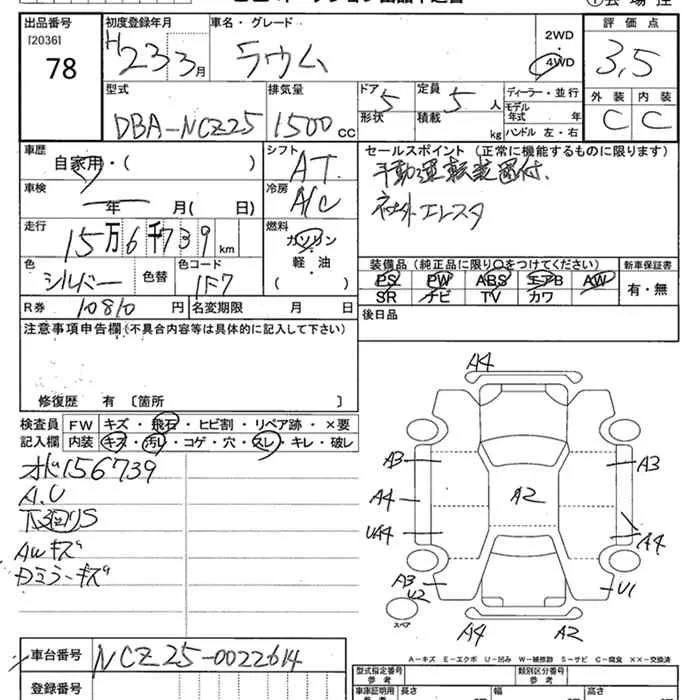 出品番号 初度登録年月 車名・グレード 評価点
[2036]
78 H23 3月 ラウム 2WD 4WD 3,5
型式 排気量 ドア 定員 ディーラー・並行 外装 内装
DBA-NCZ25 1500cc 5 5人 モデル年式 年 C C
形状 積載 kg ハンドル 左・右
車歴 シフト セールスポイント (正常に機能するものに限ります)
自家用・( ) AT
車検 冷房
年 月( 日) A/C
走行 燃料
15万6千739km ガソリン
軽・油
色 色替 色コード 装備品 (純正品に限り○をつけてください) 新車保証書
シルバー 1F7 PS PW ABS エアB AW 有・無
R券 10810円 名変期限 月 日 SR ナビ TV カワ
注意事項申告欄 (不具合内容等は具体的に記入して下さい) 後日品
修復歴 有 〔箇所
検査員 FW キズ・飛石・ヒビ割・リペア跡・×要
記入欄 内装 キズ・汚レ・コゲ・穴・スレ・キレ・破レ
オドに156739
A.U
下廻りS
AWキズ
Dミラーキズ
A4
A3 A3
A4 A2
UA4 A4
A3
U2 U1
スペア
A4 A2
車台番号 NCZ25-0022614
登録番号
A-キズ E-エクボ U-凹み W-補修跡 S-サビ C-腐食 ××-交換済
型式指定番号 参考 類別区分番号 参考
長さ 幅 高さ